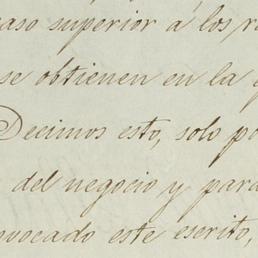 aso superior á los r
se obtienen en la
Decimos esto, solo po
del negocio y para
vocado este escrito,